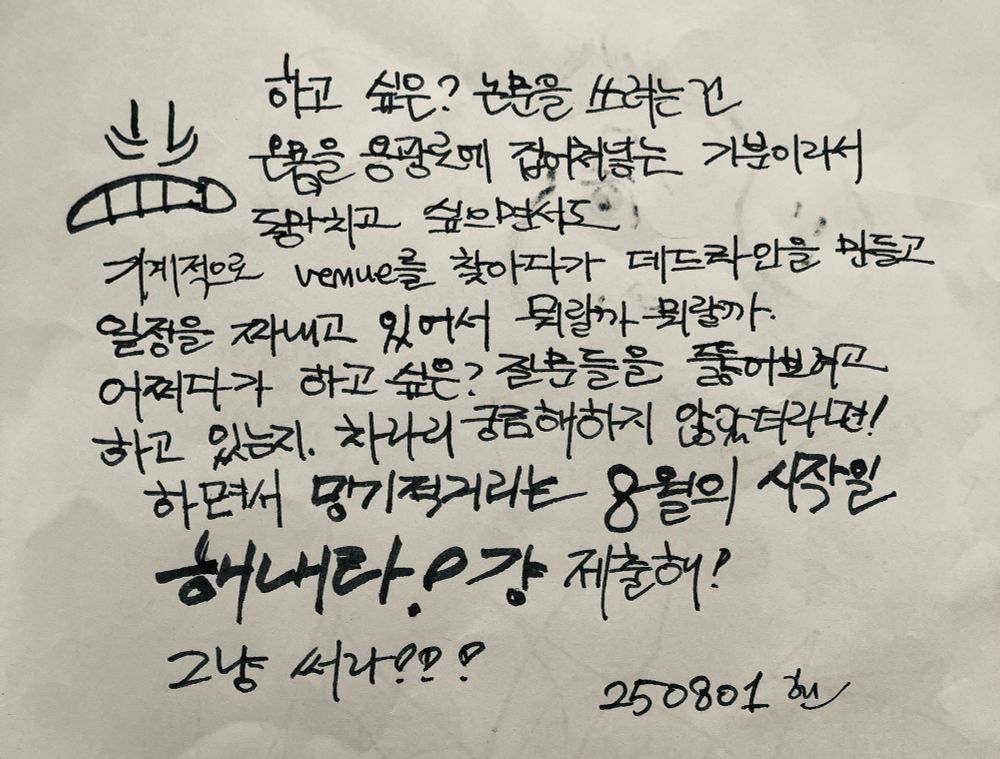 하고 싶은? 논문을 쓰려는건
온몸을 용광로에 집어쳐넣는 기분이라서
돌마치고 싶으면서도
기계적으로 venue를 찾아다가 데드라인을 만들고
일정을 짜내고 있어서 뭐랄까 뭐랄까.
어쩌다가 하고 싶은? 질문들을 뚫어보려고
하고 있는지. 차라리 궁금해하지 않았더라면!
하면서 밍기적거리는 8월의 시작일
해내라! 걍 제출해!
그냥 써라???
250801 현